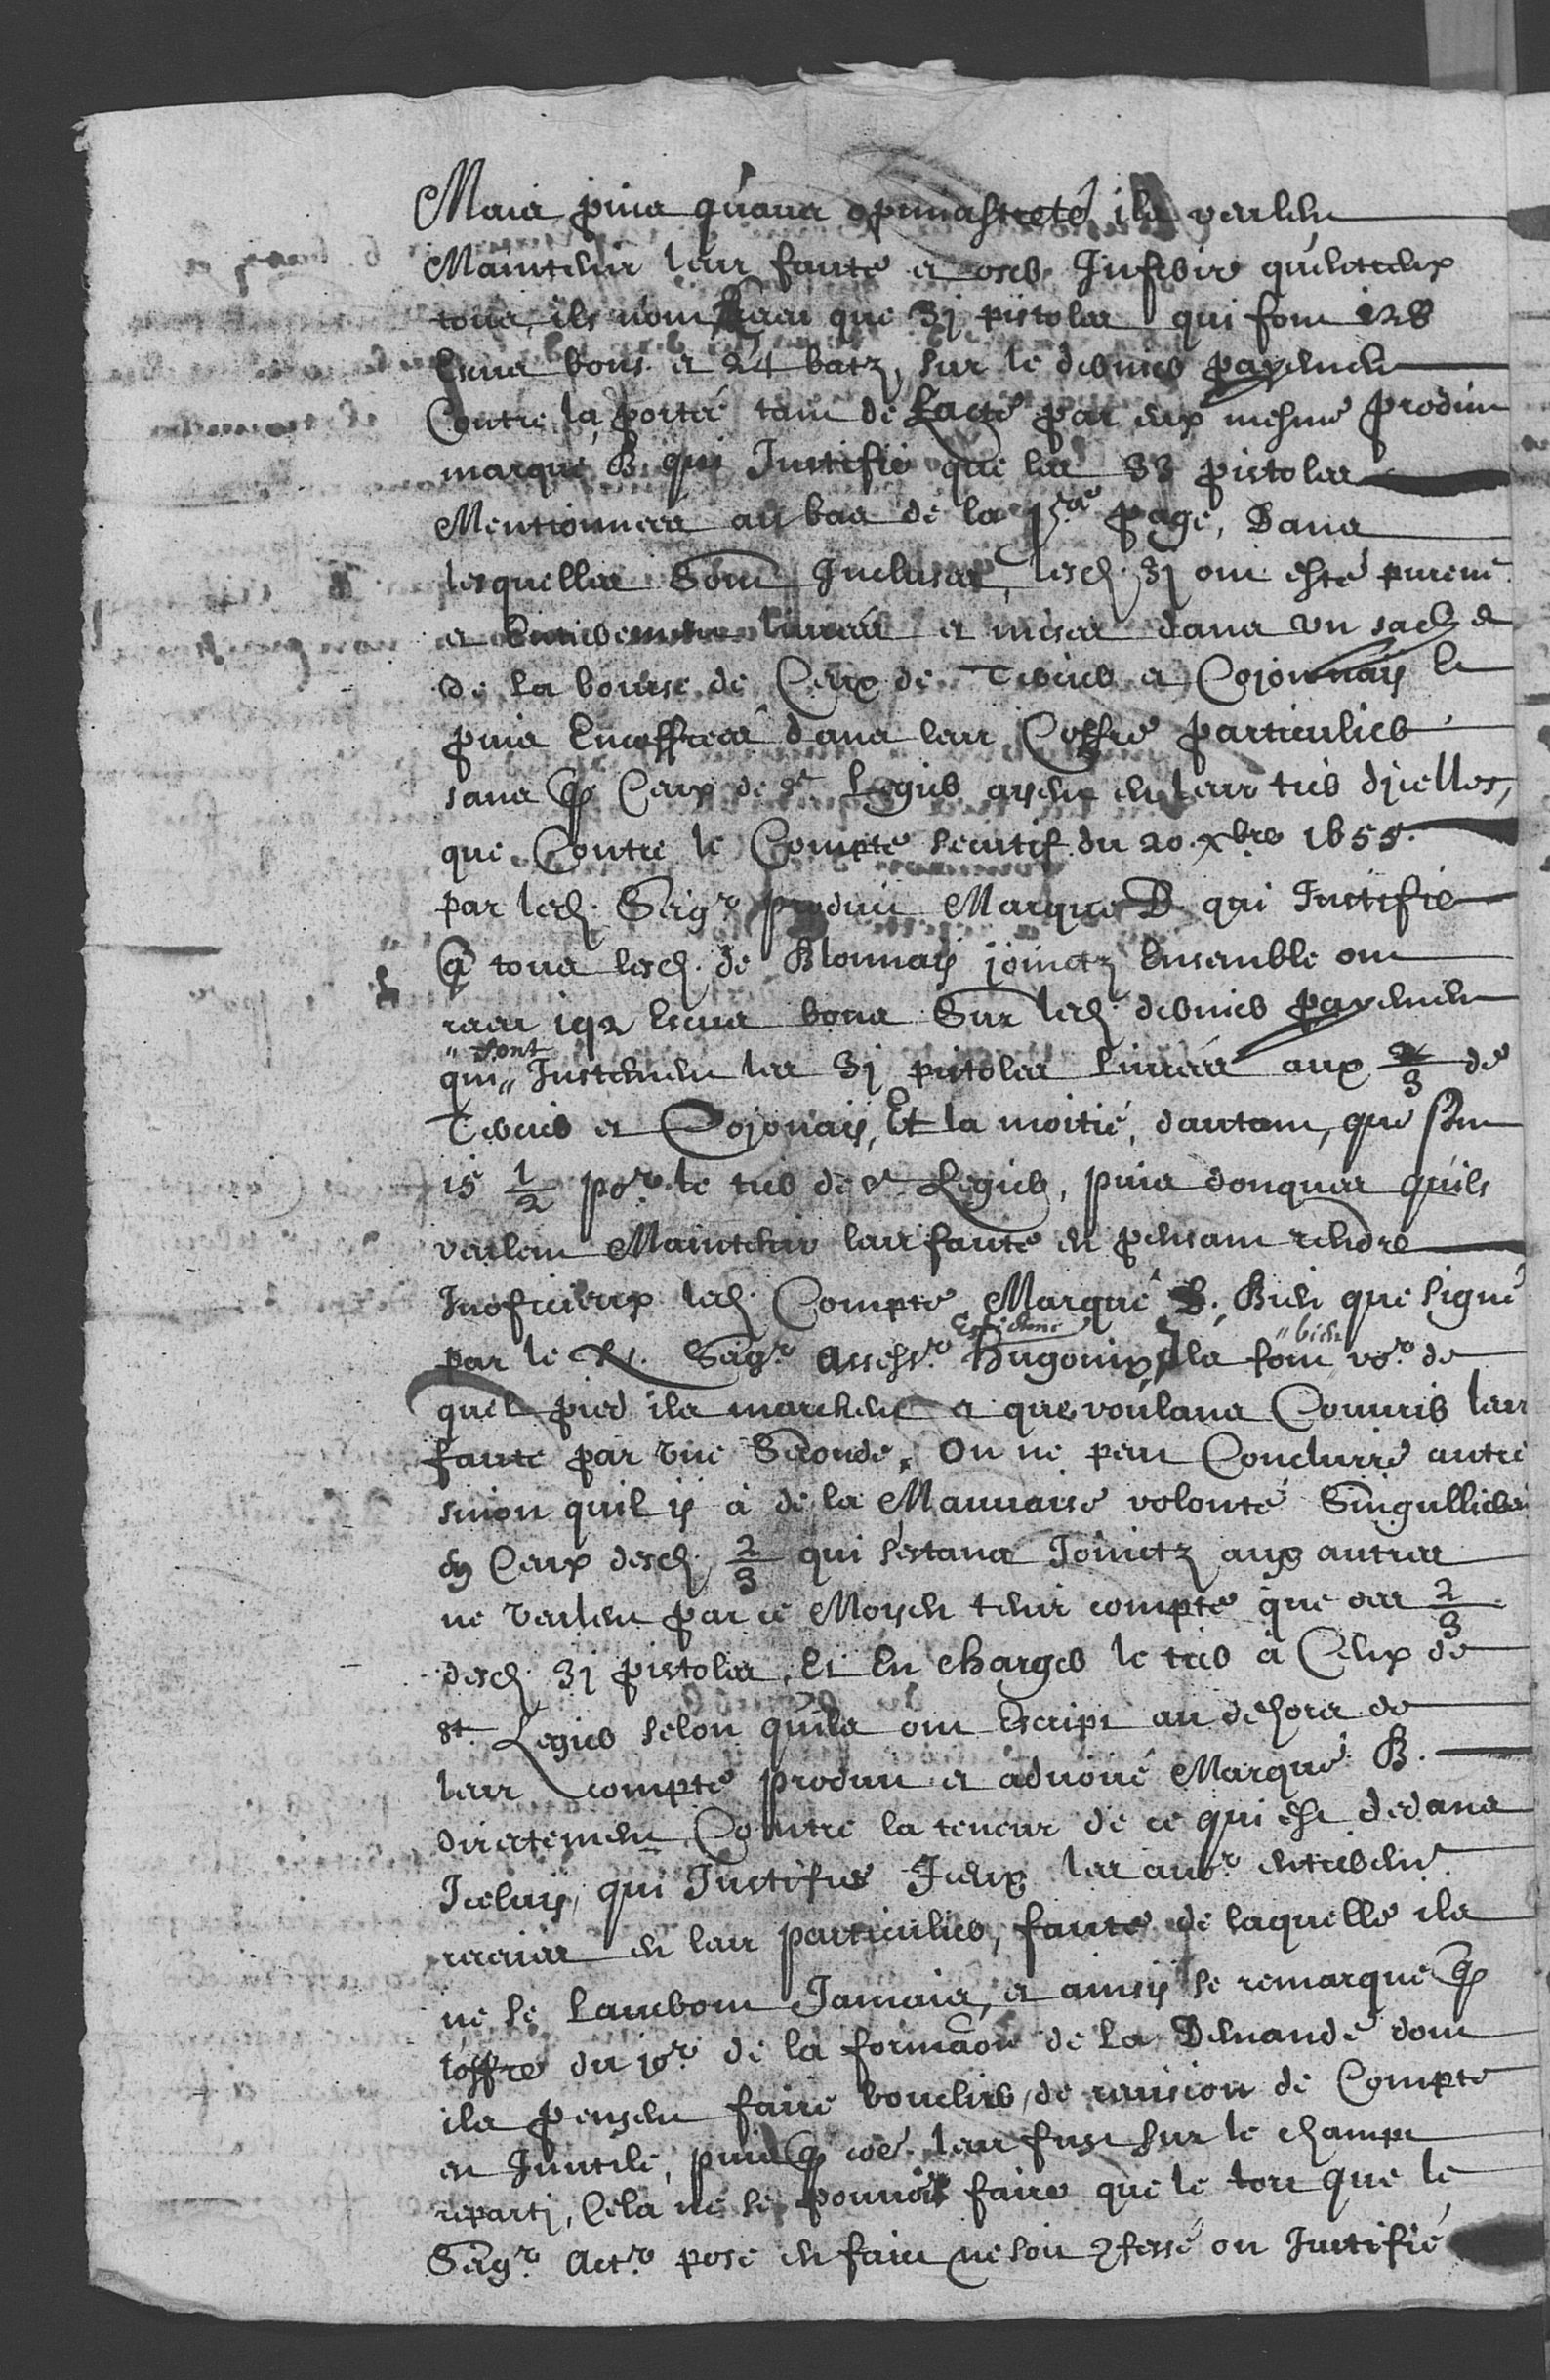 Mais puis qu'avec opiniastreté ils veulent
Maintenir leur faute et oser Inferer qu'entr'eux
tous, ils n'ont receu que 31 pistoles qui font 128
Escus bons et 24 batz, sur le dernier payement
Contre la portée tant de L'acte par eux mesme produit
marqué B qui Justifie que les 33 pistoles
Mentionnees au bas de la 15.e page, Dans
lesquelles Sont Incluses, lesd. 31 ont esté purem.t
et Entierement livrees et mises dans un sach et
de la bourse de Ceux de Tercier et Cojonnay et
puis Encoffrees dans leur Coffre particulier
sans q Ceux de S.t Legier ayent eu leur tier d'icelles,
que Contre le Compte secutif du 20. Xbre 1655.
par led. Seig.r produit Marqué D qui Justifie
q tous lesd. de Blonnay joinctz Ensemble ont
receu 192 Escus bons Sur led. dernier payement
qui "sont" Justement les 31 pistoles livrees aux 2/3 de
Tercier et Cojonay, Et la moitié, d'autant, que sont
15 1/2 po.r le tier de S.t Legier, puis donques qu'ils
veulent Maintenir leur faute en pensant rendre
Inoficieux led. Compte Marqué D. Bien que signé
par le Seig.r Assess.r Hugonin, Ils font "bien" vo.r de
quel pied ils marchent et que voulans Couvrir leur
faute par une Seconde, On ne peut Conclurre autre
sinon quil y à de la Mauvaise volonté Singulliere
en Ceux desd. 2/3 qui s'estans Joinctz aux autres
ne veulent par ce Moyen tenir compte que des 2/3
desd. 31 pistoles, Et En charger le tier à Ceux de
St. Legier selon qu'ils ont Escript au dehors de
leur compte produit et advoué Marqué B.
directement Contre la teneur de ce qui est dedans
Icelluy, qui Justifie Iceux les avo.r entierem.t
receues en leur particulier, faute de laquelle ils
ne se laveront Jamais, et ainsy se remarque q
l'offre du jo.r de la formaõn de La Demande dont
ils pensent faire bouclier, de revision de Compte
est Inutile, puis q coe leur fust sur le champt
reparti, Cela ne se pouvoit faire que le tort que le
Seig.r Act.r pose en faict ne soit 9fessé ou Justifié